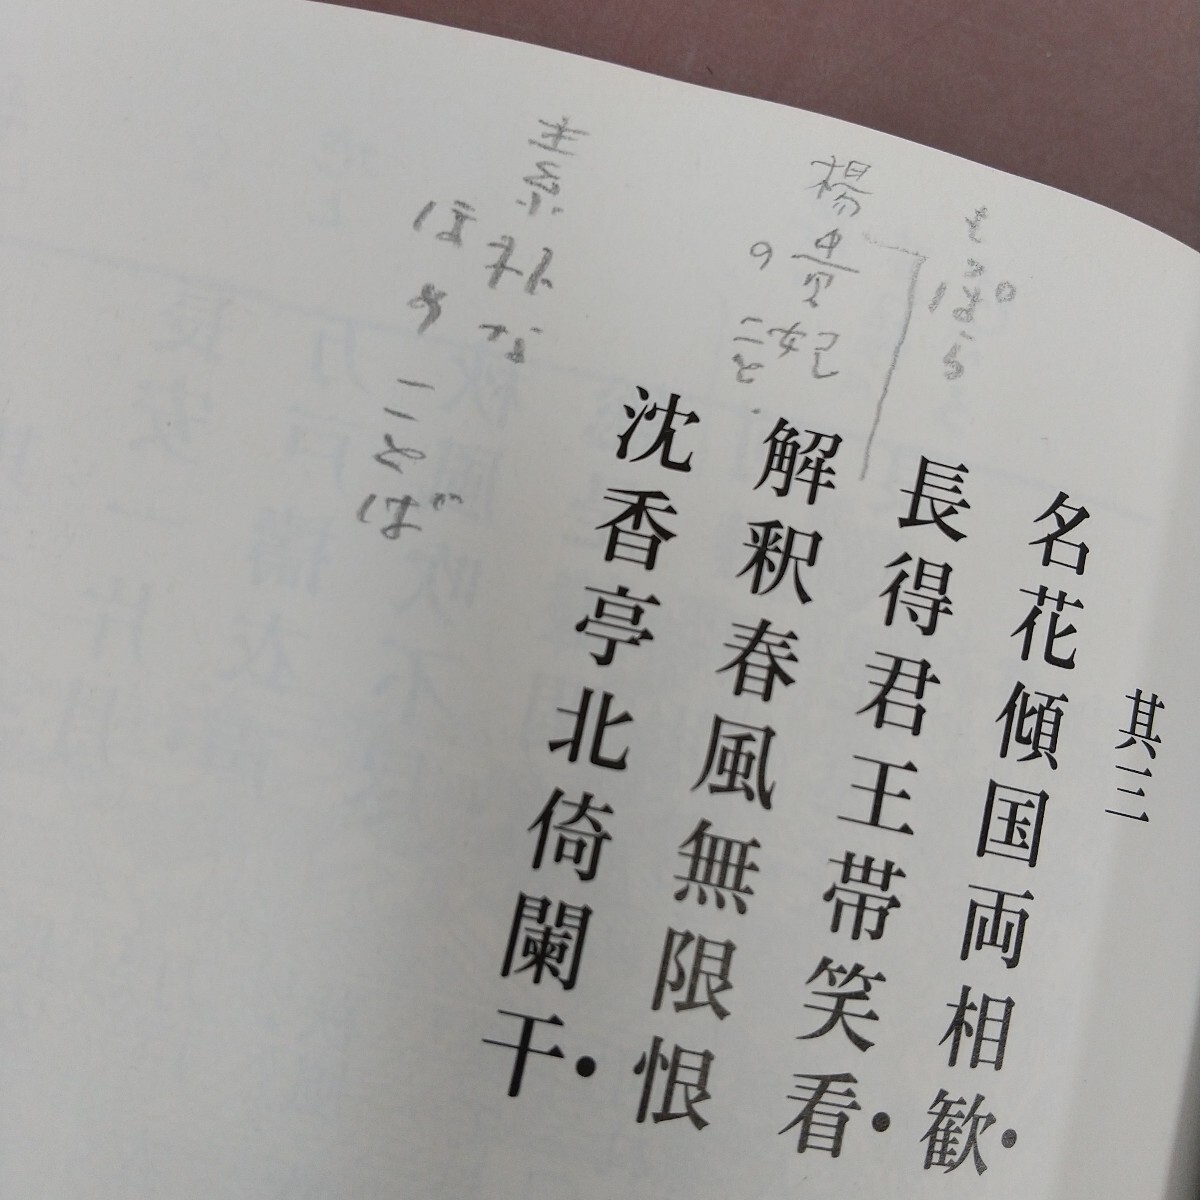 其三
名花傾国両相歓
長得君王帯笑看
解釈春風無限恨
沈香亭北倚闌干
もっぱら
楊貴妃
のこと
素朴な
ほめ
ことば